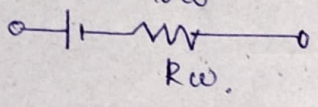 Rω.